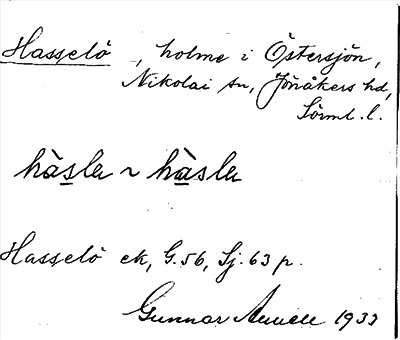 Hasselö, holme i Östersjön,
Nikolai sn, Jönåkers hd,
Sörml. l.
hàsle ~ hàsle
Hasselö ek, G.56, Sj.63 p.
Gunnar 1933